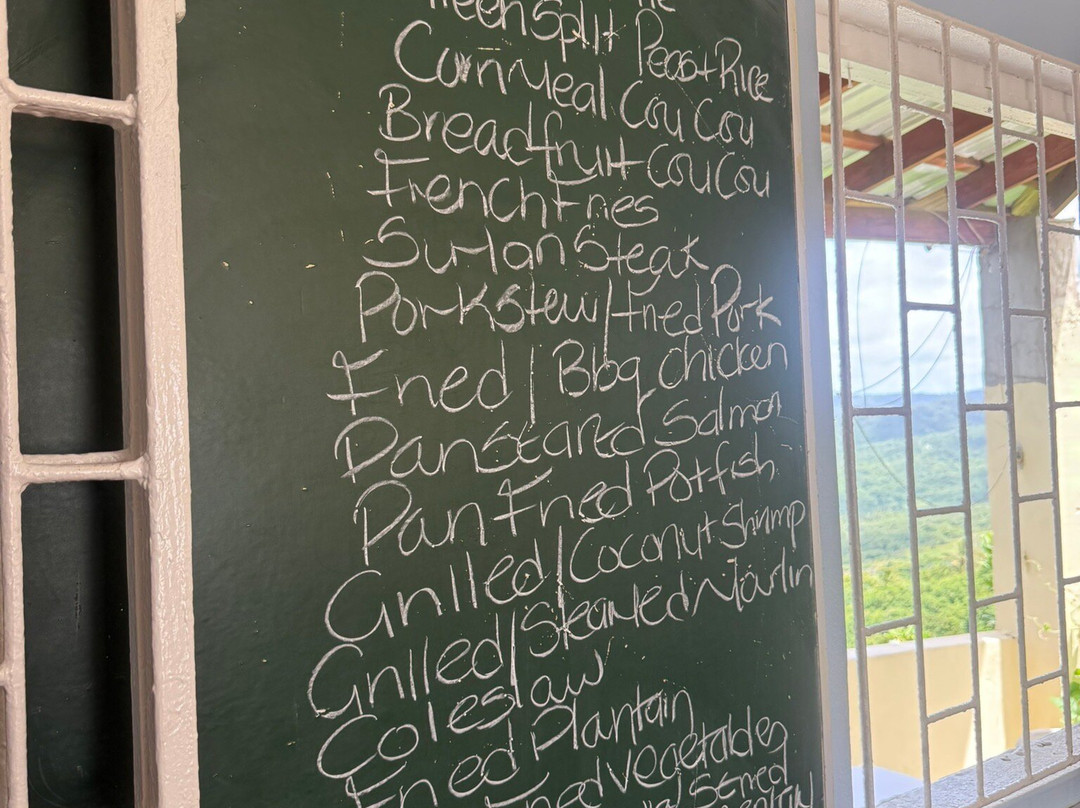 Split Peas + Rice
CornMeal Cou Cou
Breadfruit CouCou
French Fries
Surlon Steak
Pork Stew / Fried Pork
Fried / Bbq chicken
Pan Seared Salmon
Pan Fried Potfish
Grilled / Coconut Shrimp
Grilled / Steamed Marlin
Coleslaw
Fried Plantain
Vegetables